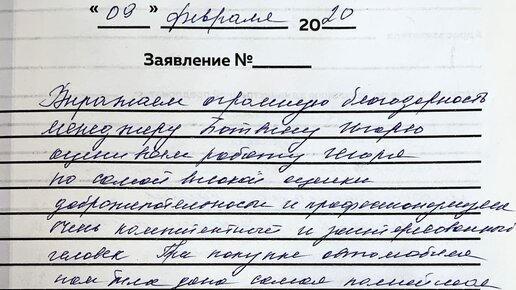 "09" февраля 2020
Заявление №
Выражаем огромную благодарность
менеджеру Игорю
оцениваем работу Игоря
по самой высокой оценки
доброжелательность и профессионализм
очень компетентный и заинтересованный
человек При покупке автомобиля
нам была дана самая полнейшая